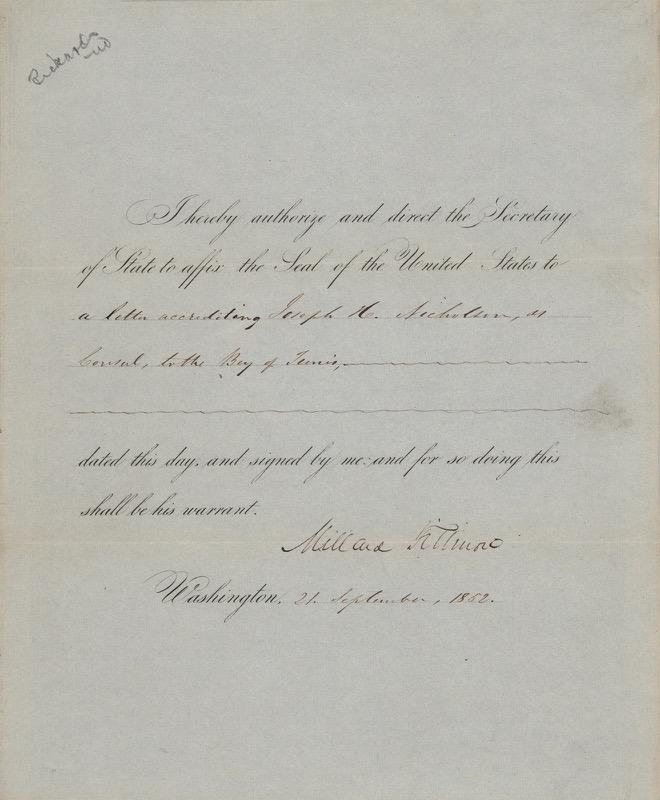 Rickards
I hereby authorize and direct the Secretary
of State to affix the Seal of the United States to
a letter accrediting Joseph H. Nicholson, as
Consul, to the Bey of Tunis,
dated this day, and signed by me: and for so doing this
shall be his warrant.
Millard Fillmore
Washington, 21. September, 1852.